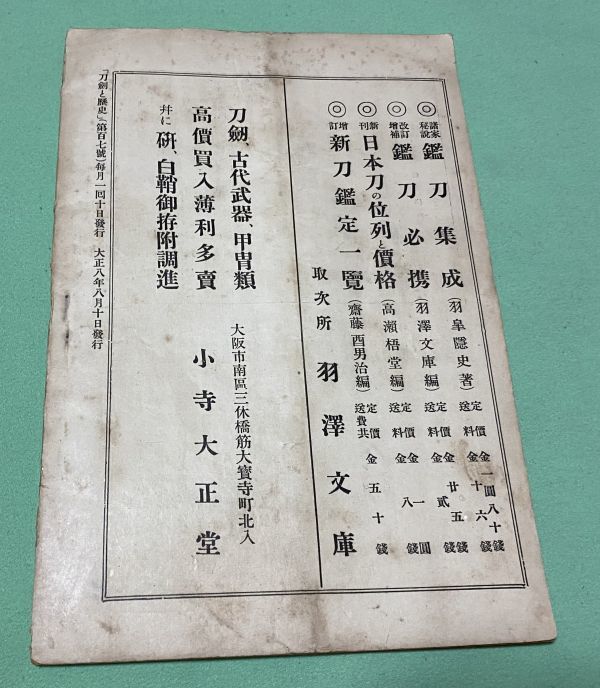 ◎諸家秘説 鑑刀集成 (羽皐隱史著) 定價金一圓八十錢 送料金十六錢
◎改訂增補 鑑刀必携 (羽澤文庫編) 定價金廿五錢 送料金貳錢
◎新刊 日本刀の位列と價格 (高瀬梧堂編) 定價金一圓 送料金八錢
◎增訂 新刀鑑定一覽 (齋藤酉男治編) 定價送費共金五十錢
取次所 羽澤文庫
刀劔、古代武器、甲冑類
高價買入薄利多賣
幷に 硏、白鞘御拵附調進
大阪市南區三休橋筋大寳寺町北入
小寺大正堂
『刀劍と歷史』(第百七號)每月一回十日發行 大正八年八月十日發行